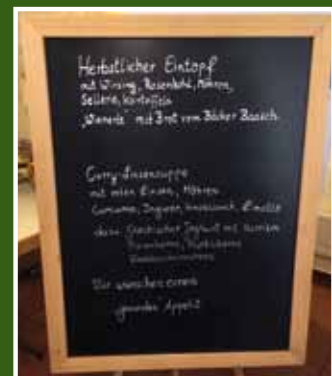 Herbstlicher Eintopf
mit Wirsing, Rosenkohl, Möhren,
Sellerie, Kartoffeln
"Wienerle" mit Brot vom Bäcker
Curry-Linsensuppe
mit roten Linsen, Möhren
Curcuma, Ingwer, Knoblauch,
dazu Griechischer Joghurt mit
Wir wünschen einen
gesunden Appetit